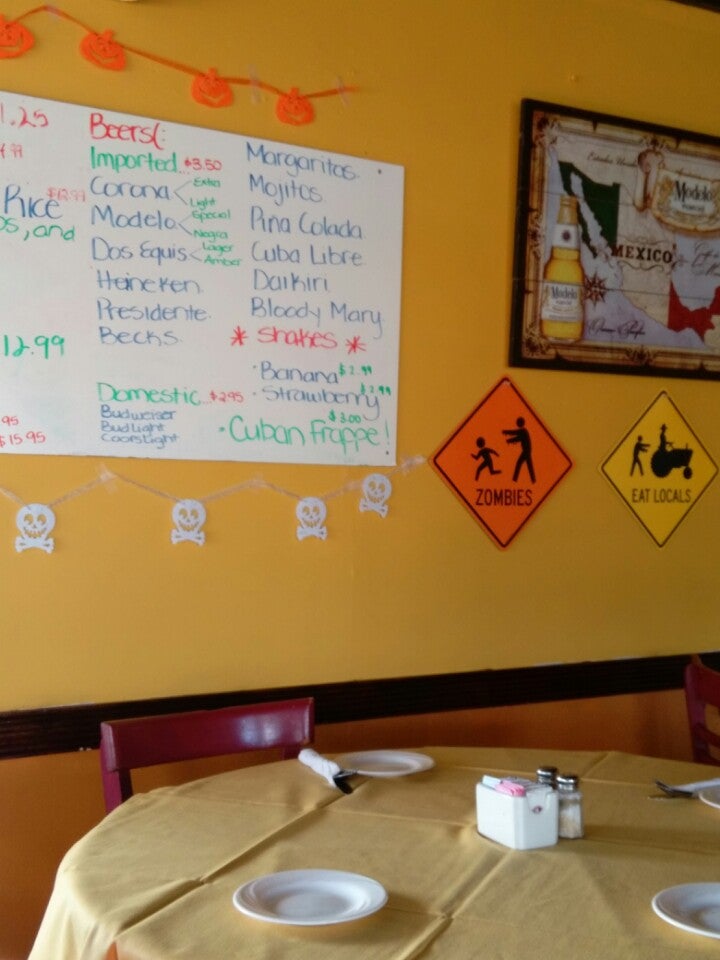 1.25
Rice $12.99
os, and
12.99
$15.95
Beers(:
Imported...$3.50
Corona Extra
Light
Modelo Special
Negra
Dos Equis Lager
Amber
Heineken
Presidente
Becks
Domestic...$2.95
Budweiser
Bud Light
Coors Light
Margaritas
Mojitos
Pina Colada
Cuba Libre
Daikiri
Bloody Mary
* Shakes *
· Banana $2.99
· Strawberry $2.99
$3.00
· Cuban Frappe!
Modelo
MEXICO
Modelo
ZOMBIES
EAT LOCALS